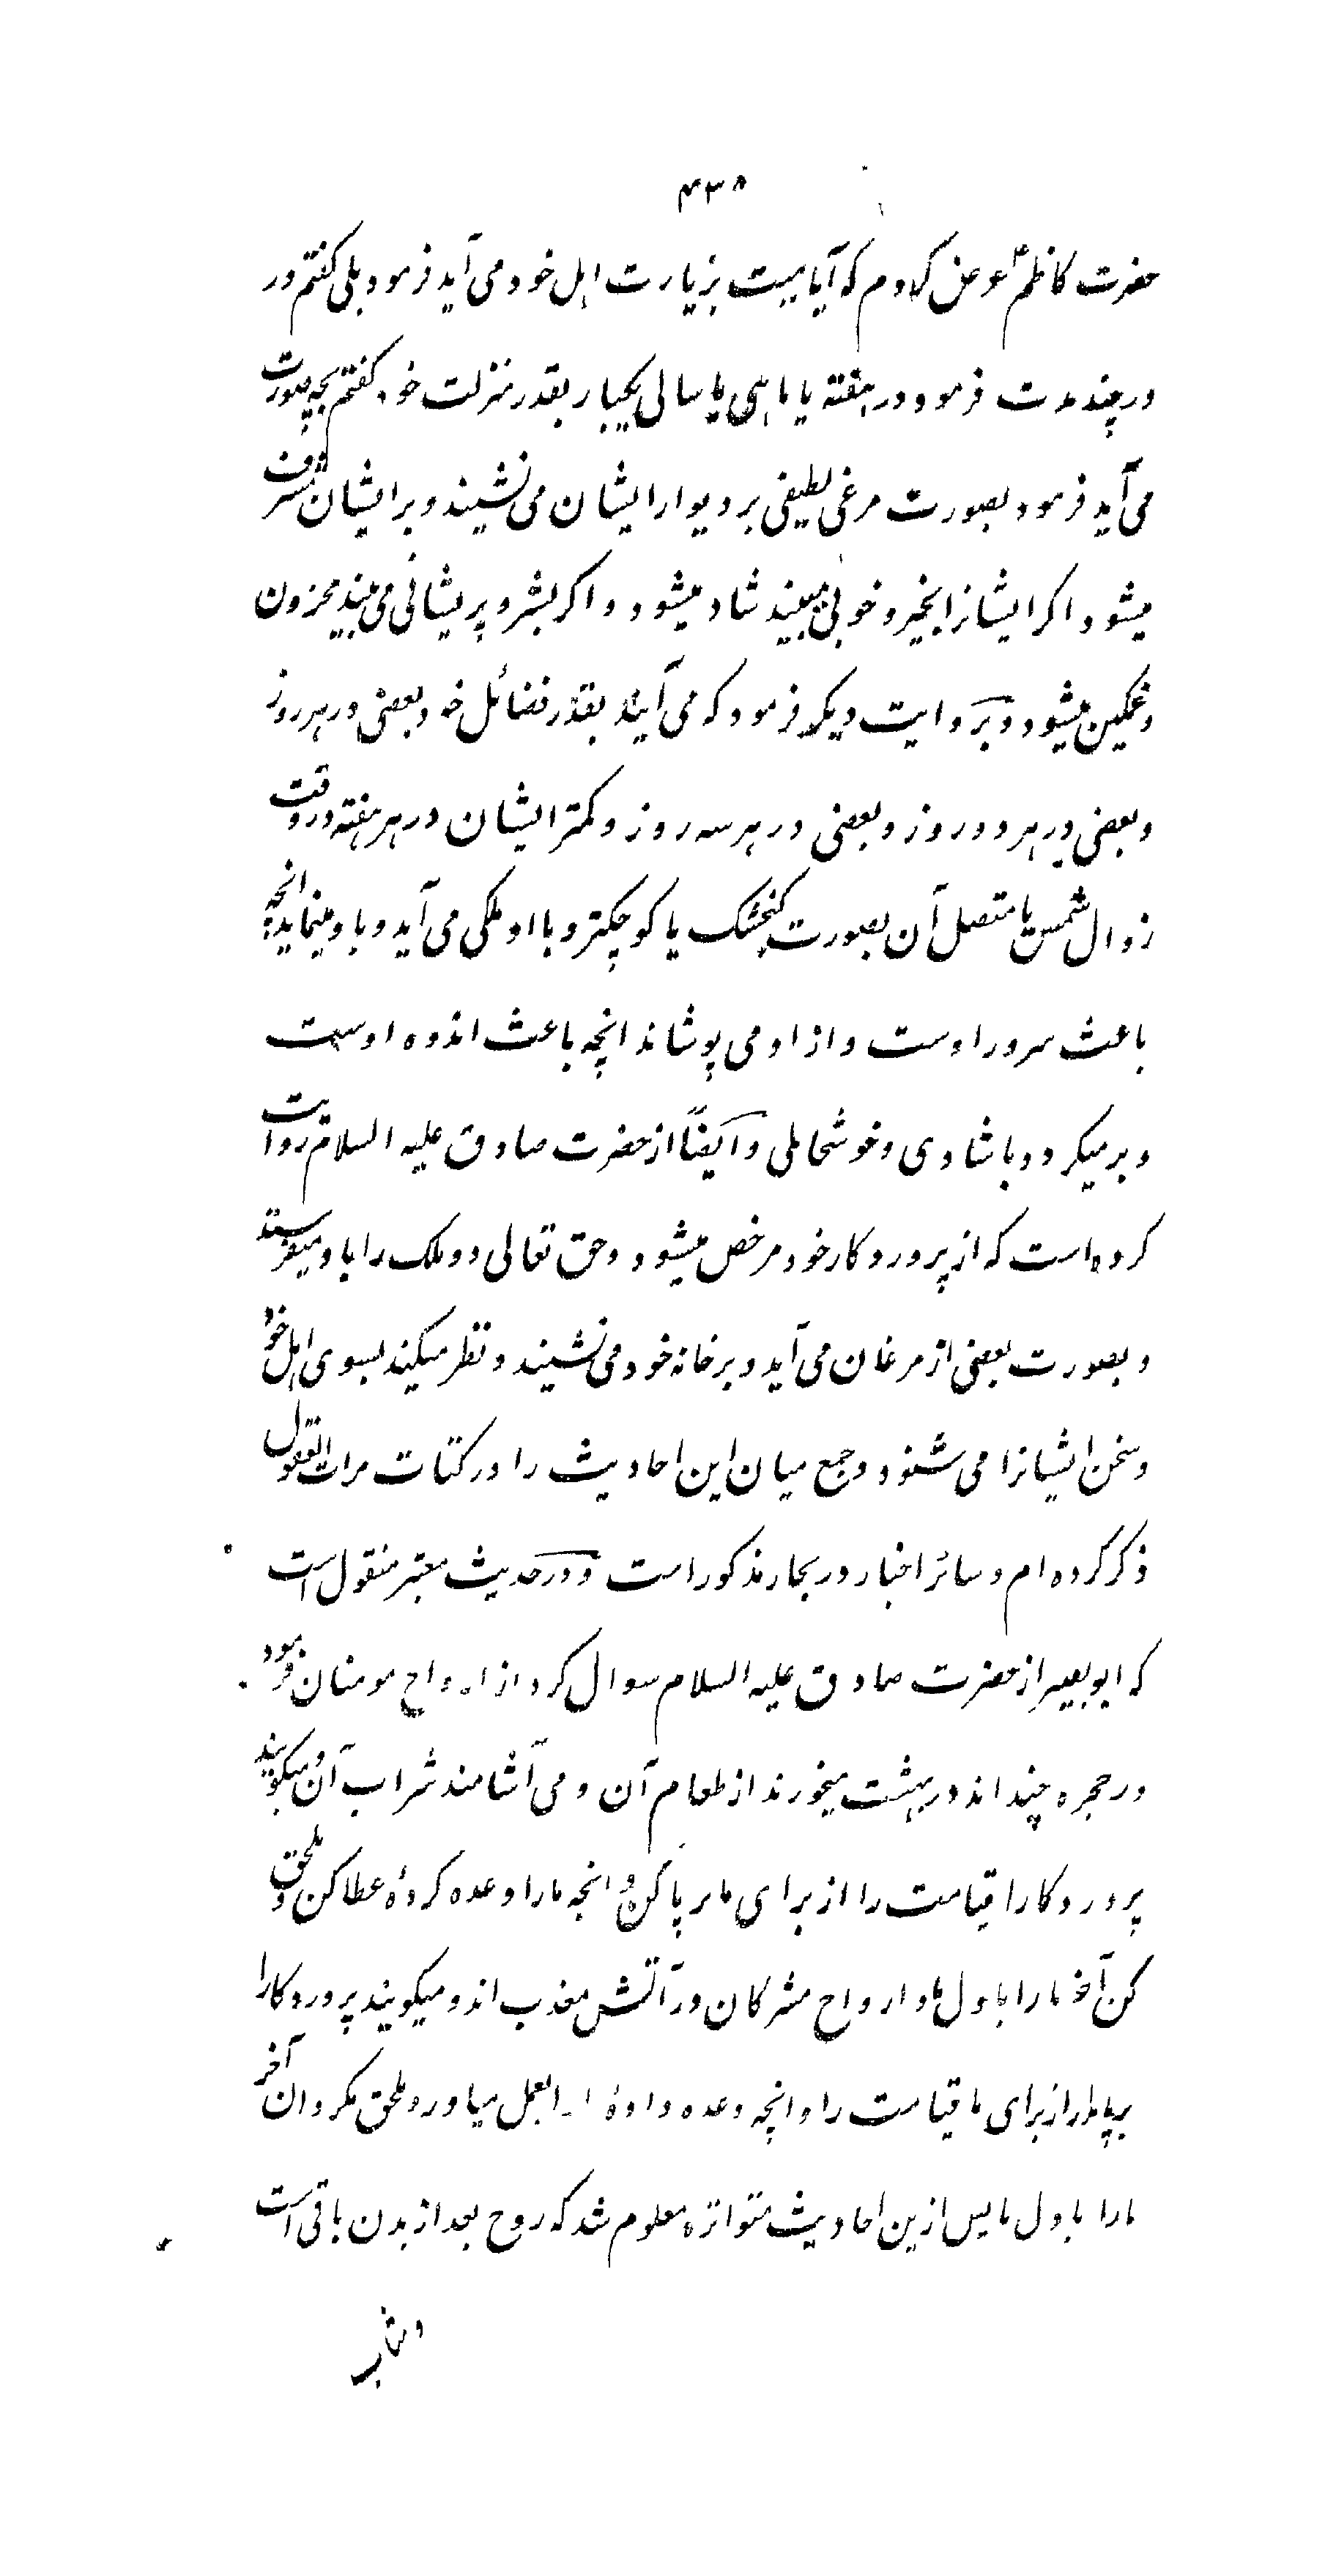 ۴۳۸
حضرت کاظم ع عرض کردم که آیا میت بزیارت اهل خود می آید فرمود بلی گفتم در
در چند مدت فرمود در هفته یا ماهی یا سالی یکبار بقدر منزلت خود گفتم بچه صورت
می آید فرمود بصورت مرغی لطیفی بر دیوار ایشان می نشیند و بر ایشان مشرف
میشود اگر ایشانرا بخیر و خوبی میبیند شاد میشود و اگر بشر و پریشانی می بیند محزون
و غمگین میشود و بروایت دیگر فرمود که می آیند بقدر فضائل خود بعضی در هر روز
و بعضی در هر دو روز و بعضی در هر سه روز و کمتر ایشان در هر هفته در وقت
زوال شمس یا متصل آن بصورت گنجشک یا کوچکتر و با او ملکی می آید و باو مینماید انچه
باعث سرور اوست و از او می پوشاند انچه باعث اندوه اوست
و برمیگردد با شادی و خوشحالی و ایضاً از حضرت صادق علیه السلام روایت
کرده است که از پروردگار خود مرخص میشود و حق تعالی دو ملک را باو میفرستد
و بصورت بعضی از مرغان می آید و بر خانه خود می نشیند و نظر میکند بسوی اهل خود
و سخن ایشانرا می شنود و جمع میان این احادیث را در کتات مرات العقول
ذکر کرده ام و سائر اخبار در بحار مذکور است و در حدیث معتبر منقول است
که ابو بصیر از حضرت صادق علیه السلام سوال کرد از ارواح مومنان فرمود
در حجره چند اند در بهشت میخورند از طعام آن و می آشامند شراب آن و میگویند
پروردگارا قیامت را از برای ما برپا کن و انچه ما را وعده کردهٔ عطا کن و ملحق
کن آخر ما را باول ما و ارواح مشرکان در آتش معذب اند و میگویند پروردگارا
برپا مدار از برای ما قیامت را و انچه وعده دادهٔ بعمل میاور و ملحق مگردان آخر
ما را باول ما پس ازین احادیث متواتره معلوم شد که روح بعد از بدن باقی است